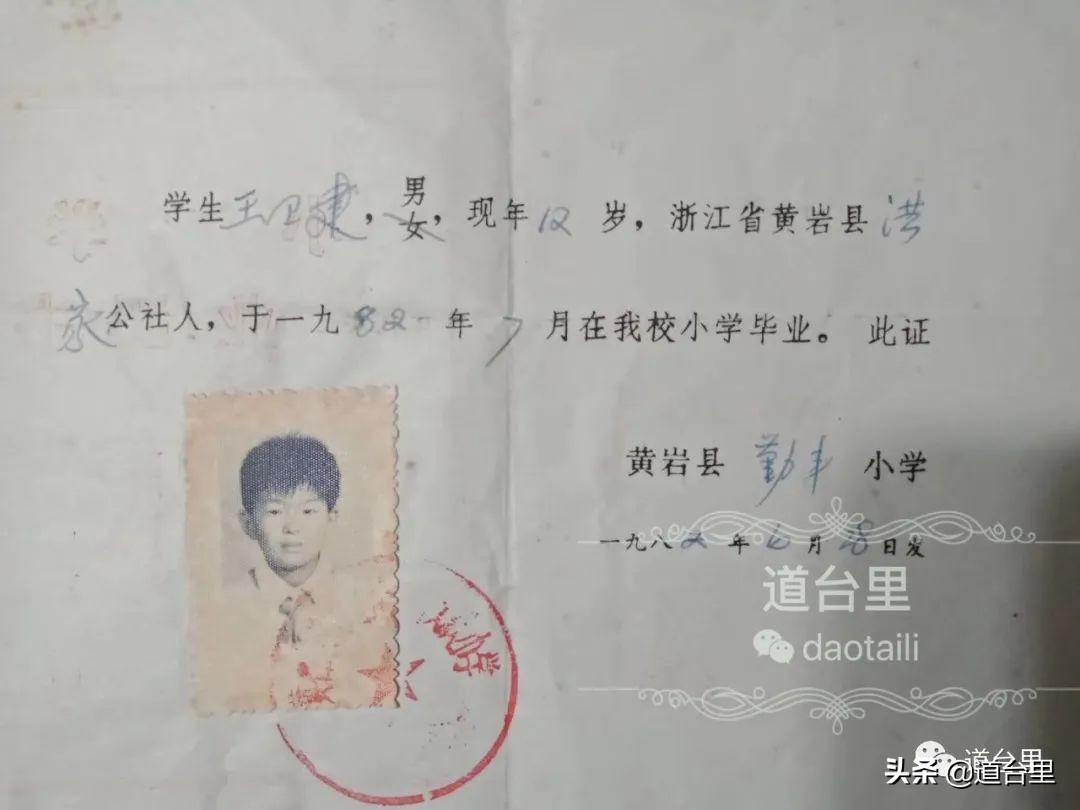 学生王卫建，男
女，现年12岁，浙江省黄岩县洪
家公社人，于一九82年7月在我校小学毕业。此证
黄岩县勤丰小学
一九八2年7月8日发
道台里
daotaili
道台里
头条@道台里